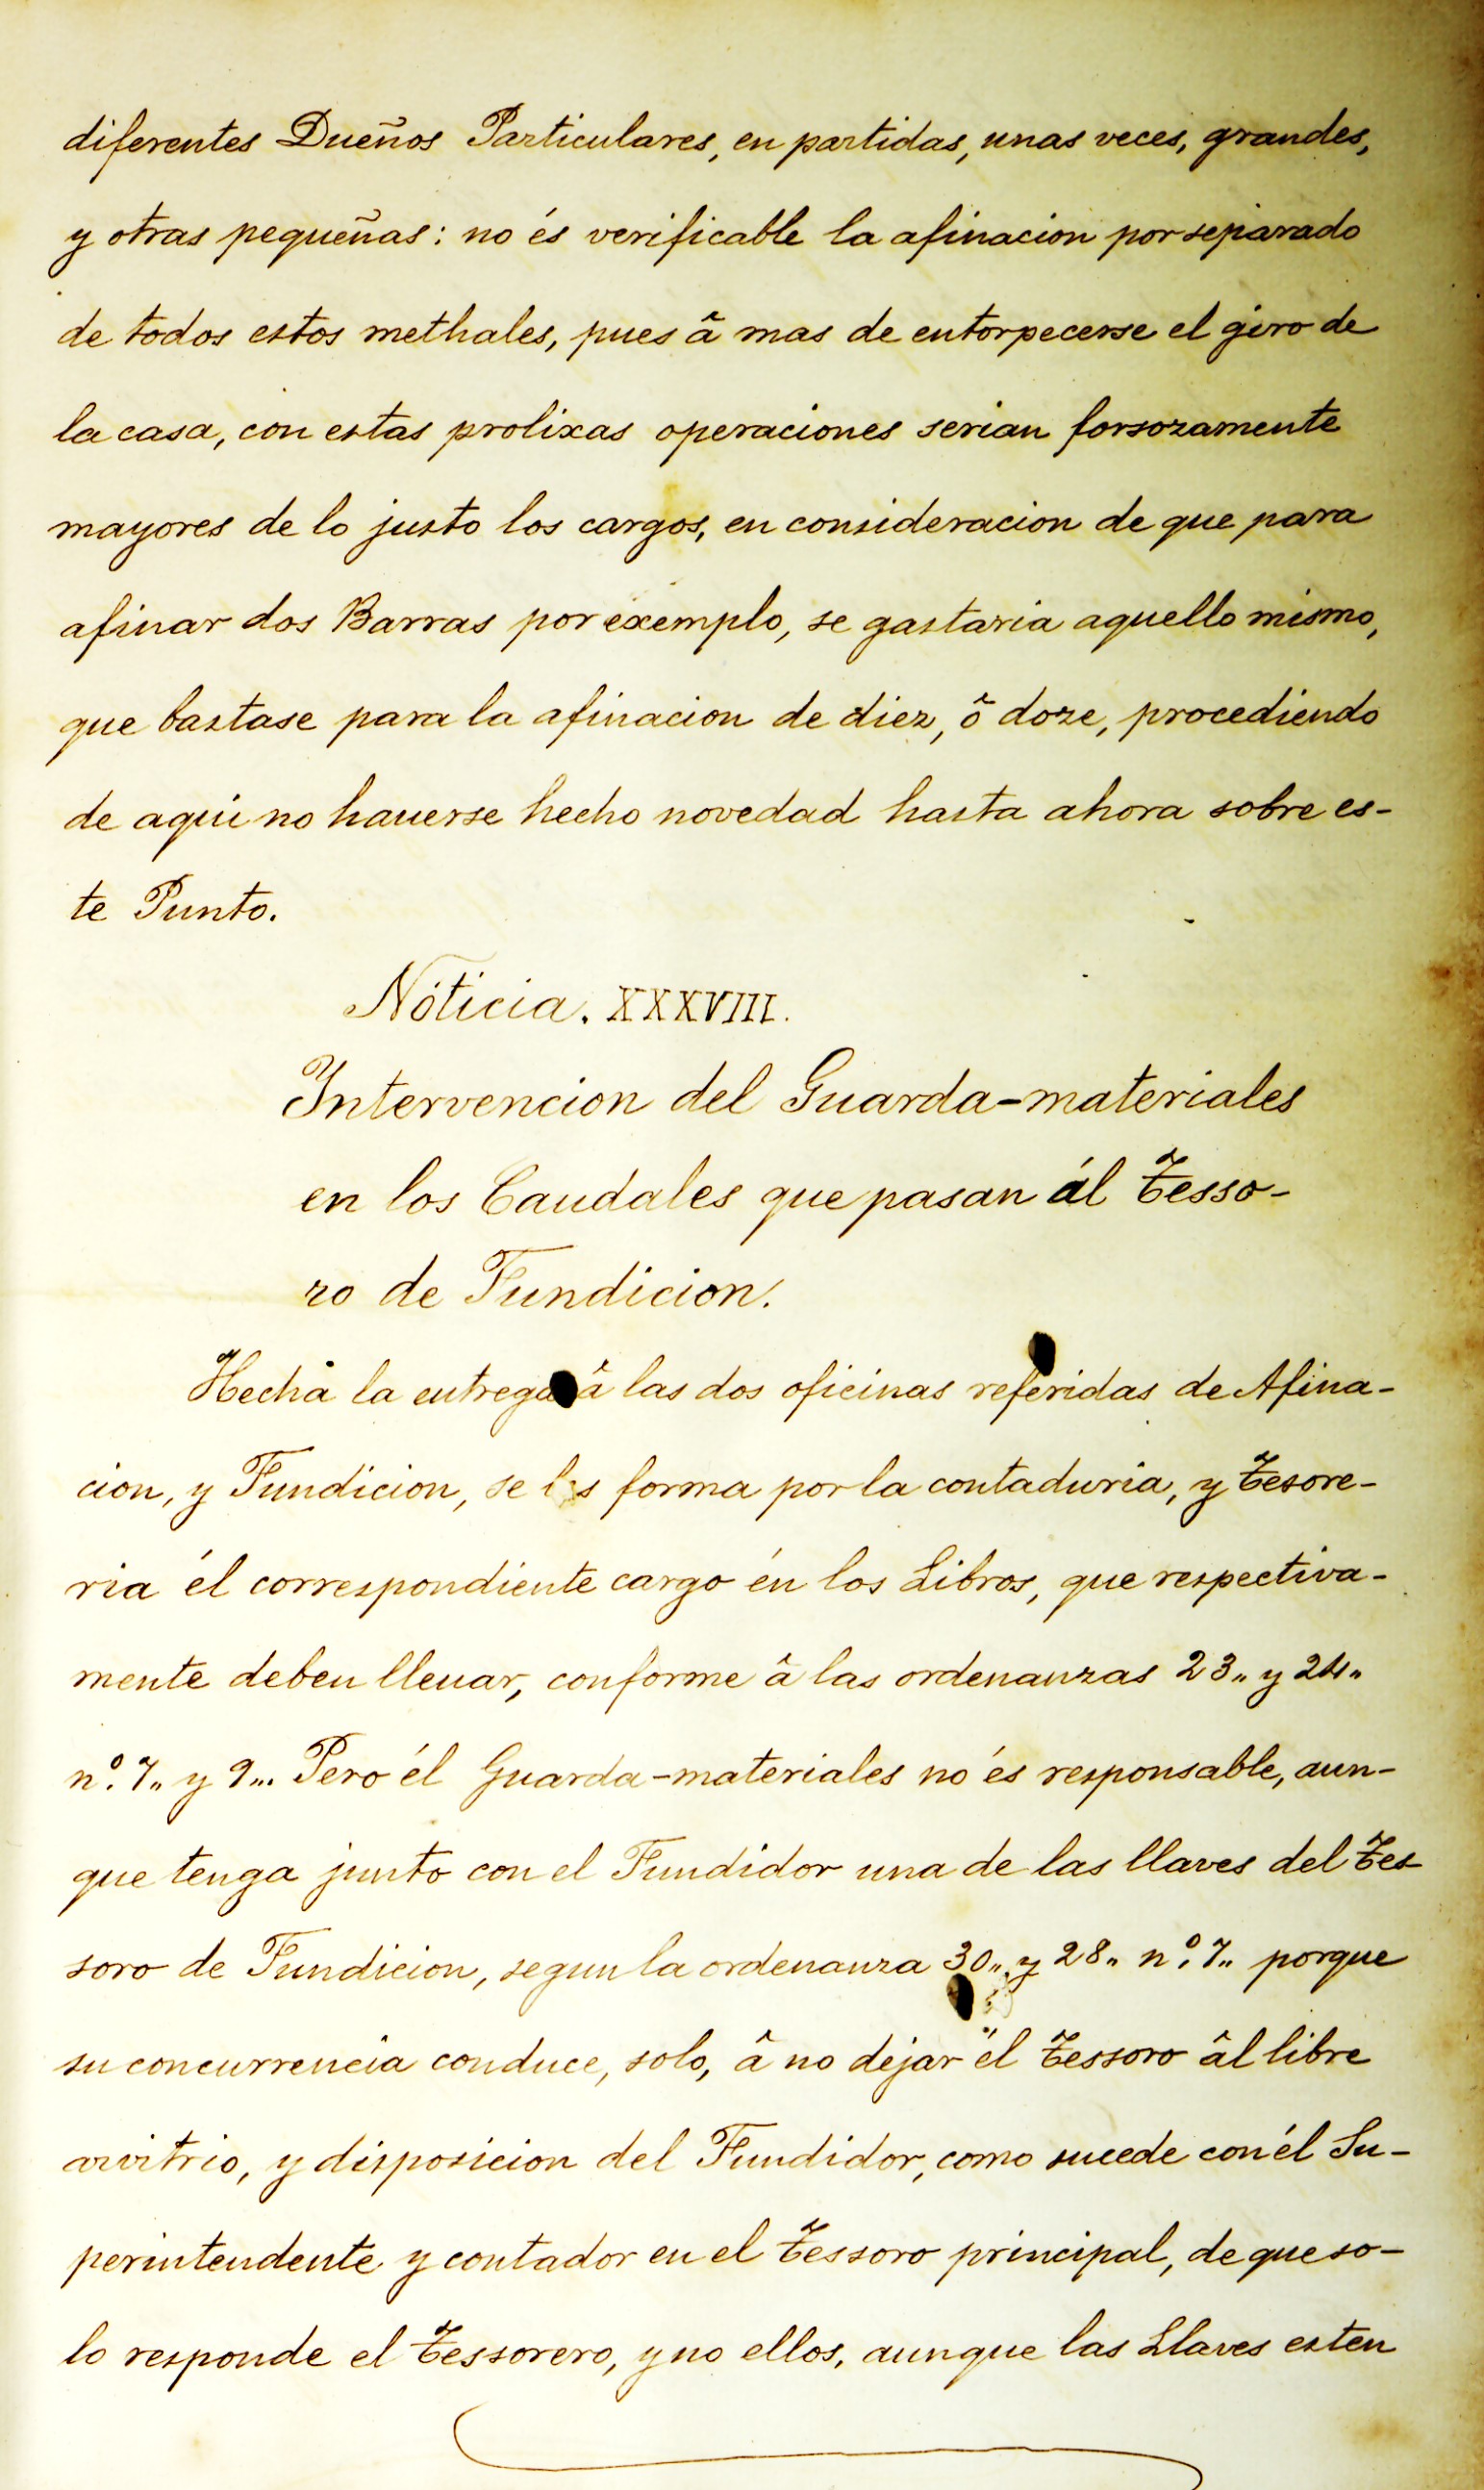 diferentes Dueños Particulares, en partidas, unas veces, grandes,
y otras pequeñas: no és verificable la afinacion por separado
de todos estos methales, pues â mas de entorpecerse el giro de
la casa, con estas prolixas operaciones serian forsozamente
mayores de lo justo los cargos, en consideracion de que para
afinar dos Barras por exemplo, se gastaria aquello mismo,
que bastase para la afinacion de diez, ô doze, procediendo
de aqui no hauerse hecho novedad hasta ahora sobre es-
te Punto.
Nóticia. XXXVIII.
Intervencion del Guarda-materiales
en los Caudales que pasan ál Tesso-
ro de Fundicion.
Hecha la entrega â las dos oficinas referidas de Afina-
cion, y Fundicion, se les forma por la contaduria, y Tesore-
ria él correspondiente cargo én los Libros, que respectiva-
mente deben lleuar, conforme â las ordenanzas 23,, y 24,,
nº. 7,, y 9,,. Pero él Guarda-materiales no és responsable, aun-
que tenga junto con el Fundidor una de las llaves del Tes-
soro de Fundicion, segun la ordenanza 30,, y 28,, nº. 7,, porque
su concurrencia conduce, solo, â no dejar él Tessoro âl libre
arvitrio, y disposicion del Fundidor, como sucede con él Su-
perintendente y contador en el Tessoro principal, de que so-
lo responde el Tessorero, y no ellos, aunque las Llaves esten